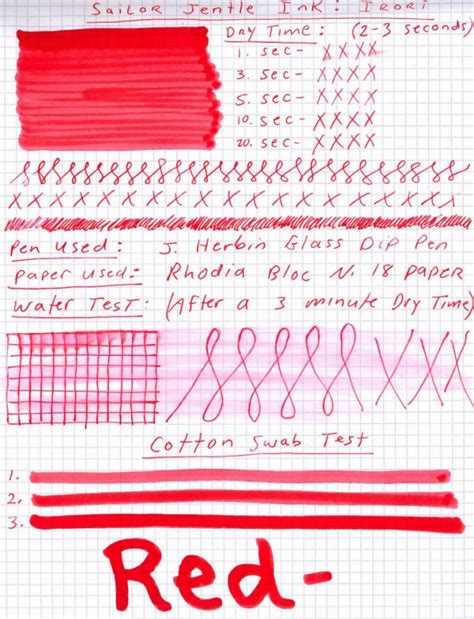 Sailor Jentle Ink: Irori
Day Time: (2-3 seconds)
1. sec- X X X X
3. sec- X X X X
5. sec- X X X X
10. sec- X X X X
20. sec- X X X X
X X X X X X X X X X X X X X X X X X X
Pen Used: J. Herbin Glass Dip Pen
Paper Used- Rhodia Bloc N. 18 paper
Water Test: (After a 3 minute Dry Time)
X X X
Cotton Swab Test
1.
2.
3.
Red-